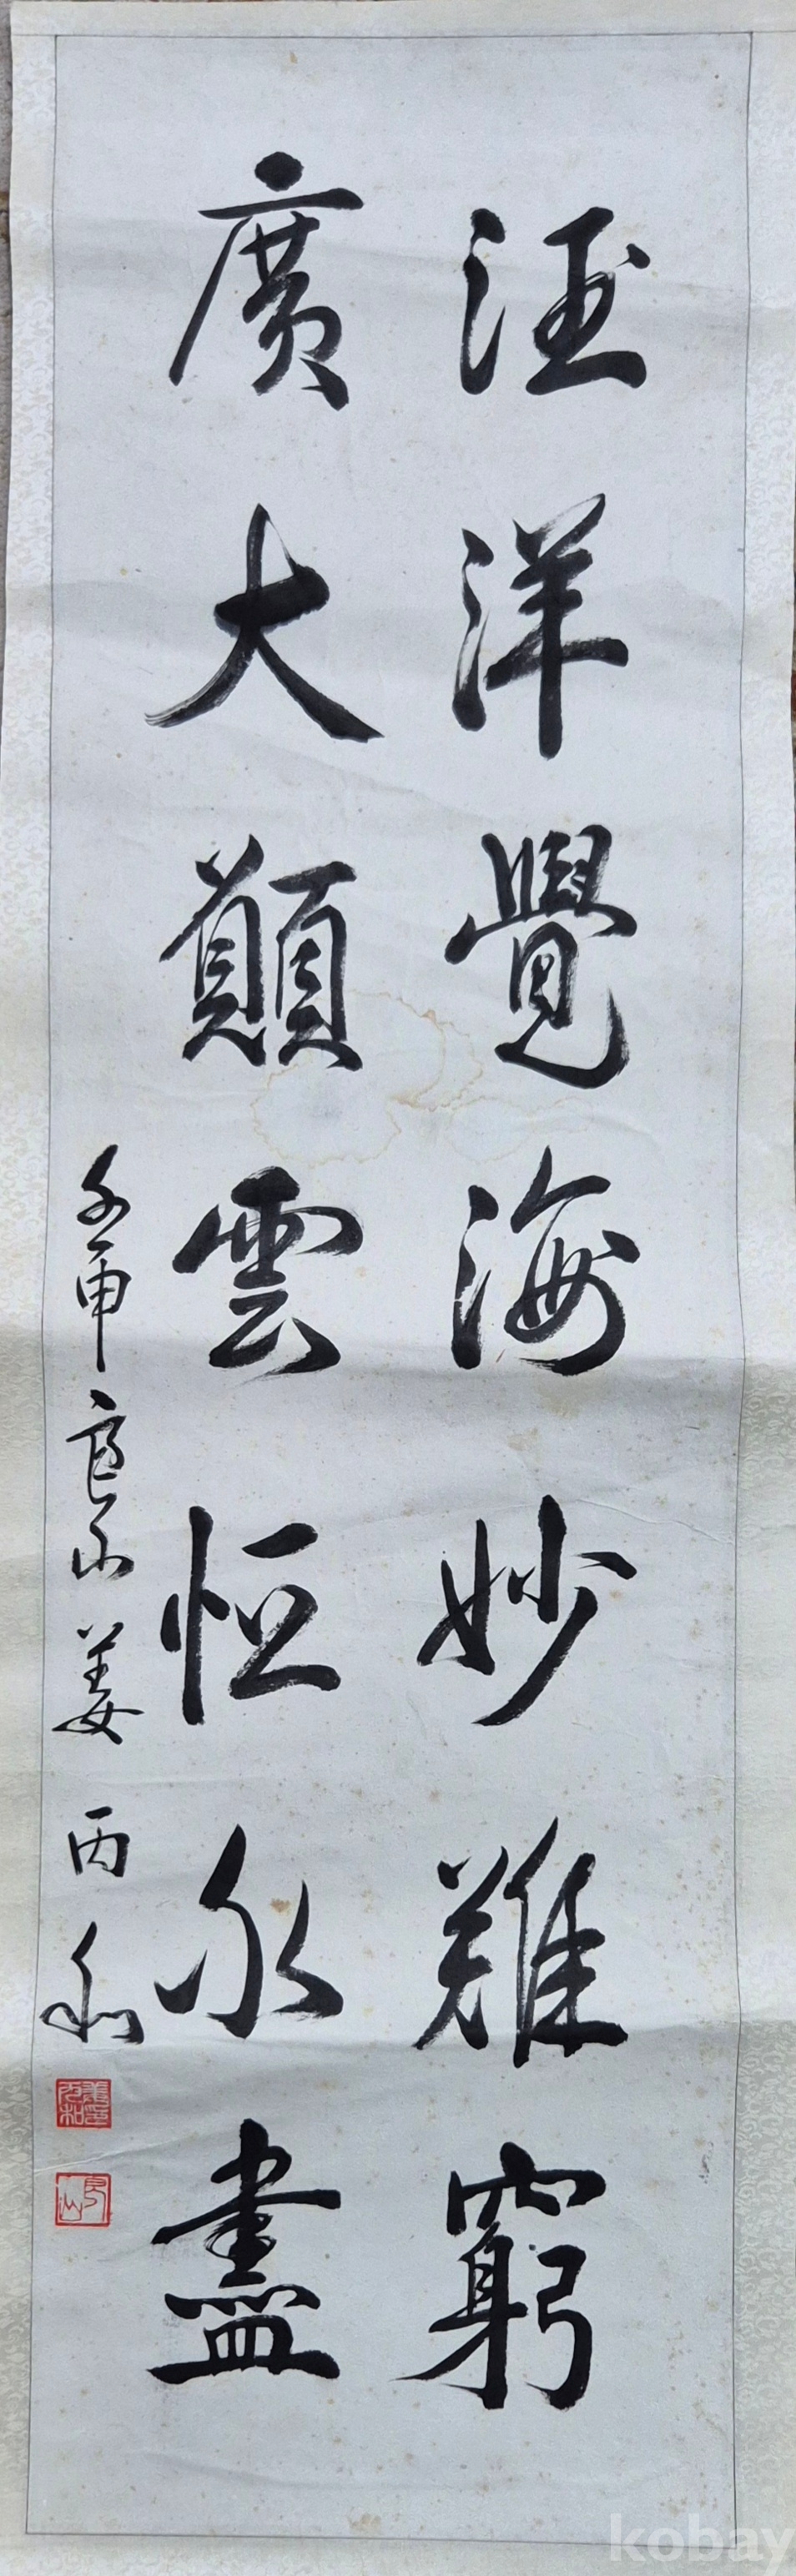 汪洋覺海妙難窮
廣大願雲恒永盡
壬申 姜丙和
kobay